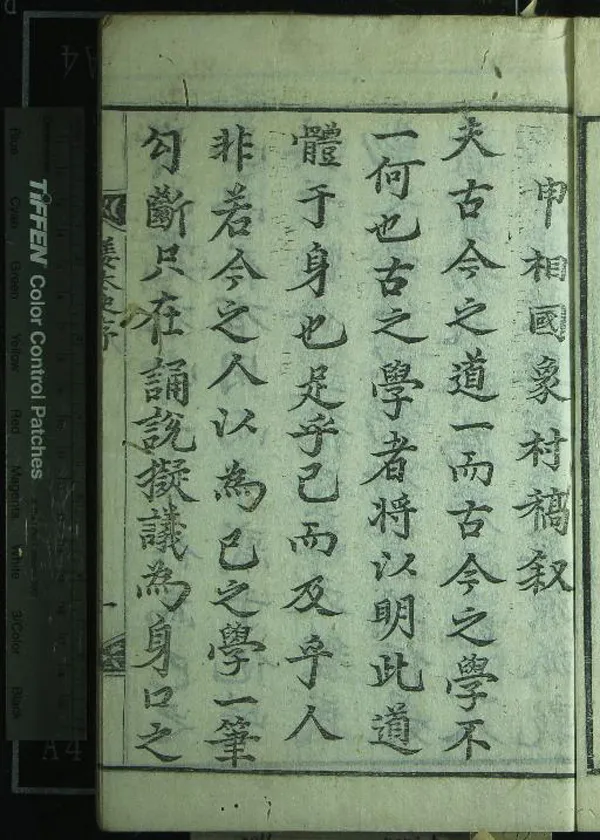 申相國象村稿叙
夫古今之道一而古今之學不
一何也古之學者将以明此道
體于身也足乎己而及乎人
非若今之人以為已之學一筆
勾斷只在誦說擬議為身口之
姜太史序
一
TIFFEN Color Control Patches
Blue Cyan Green Yellow Red Magenta White 3/Color Black
A4
A4